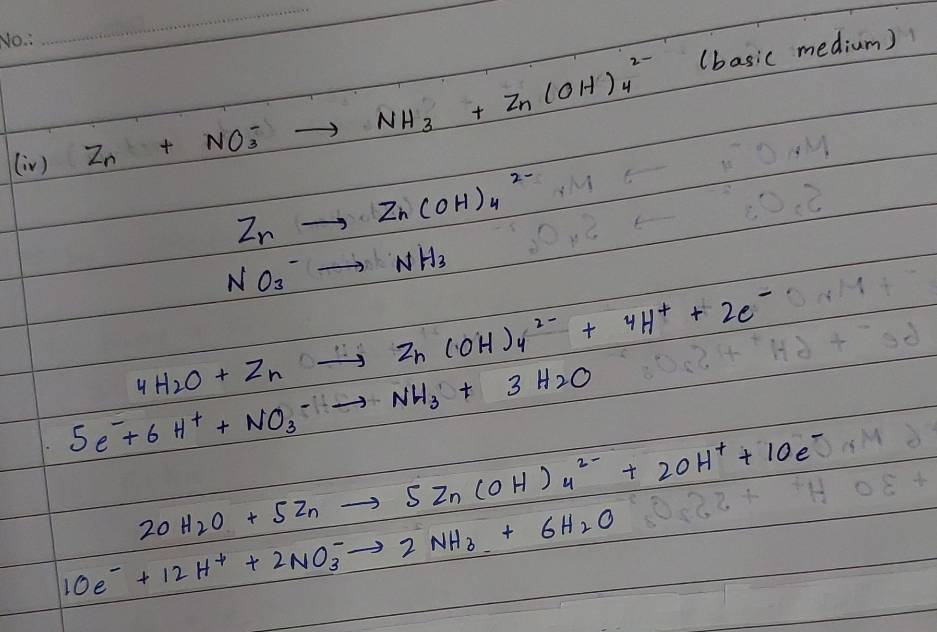 No.:
(iv) Zn + NO₃⁻ → NH₃ + Zn(OH)₄²⁻ (basic medium)
Zn → Zn(OH)₄²⁻
NO₃⁻ → NH₃
4H₂O + Zn → Zn(OH)₄²⁻ + 4H⁺ + 2e⁻
5e⁻ + 6H⁺ + NO₃⁻ → NH₃ + 3H₂O
20H₂O + 5Zn → 5Zn(OH)₄²⁻ + 20H⁺ + 10e⁻
10e⁻ + 12H⁺ + 2NO₃⁻ → 2NH₃ + 6H₂O